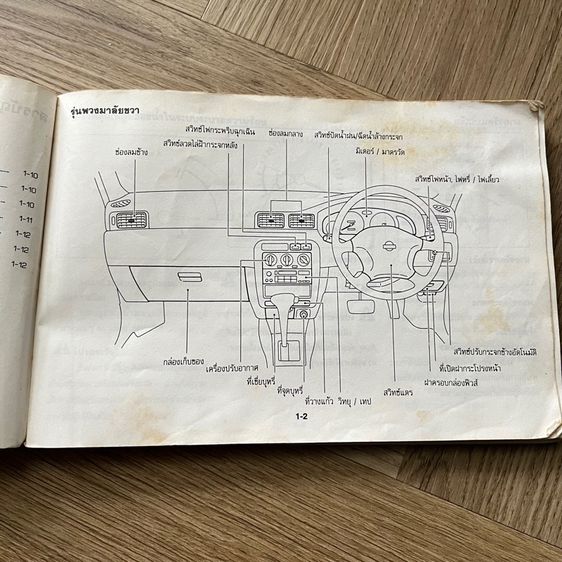 รุ่นพวงมาลัยขวา
สวิทช์ไฟกระพริบฉุกเฉิน
ช่องลมกลาง
สวิทช์ปัดน้ำฝน/ฉีดน้ำล้างกระจก
ช่องลมข้าง
สวิทช์ลวดไล่ฝ้ากระจกหลัง
มิเตอร์ / มาตรวัด
สวิทช์ไฟหน้า, ไฟหรี่ / ไฟเลี้ยว
1-10
1-10
1-10
1-11
1-12
1-12
1-12
สวิทช์ปรับกระจกข้างอัตโนมัติ
กล่องเก็บของ
เครื่องปรับอากาศ
ที่เปิดฝากระโปรงหน้า
ที่เขี่ยบุหรี่
ฝาครอบกล่องฟิวส์
ที่จุดบุหรี่
สวิทช์แตร
ที่วางแก้ว
วิทยุ / เทป
1-2